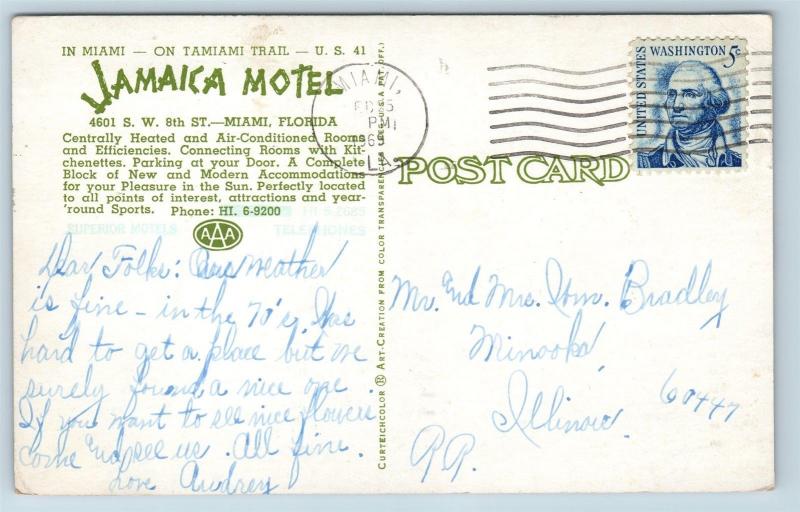 IN MIAMI — ON TAMIAMI TRAIL — U. S. 41
JAMAICA MOTEL
4601 S. W. 8th ST.—MIAMI, FLORIDA
Centrally Heated and Air-Conditioned Rooms
and Efficiencies. Connecting Rooms with Kit-
chenettes. Parking at your Door. A Complete
Block of New and Modern Accommodations
for your Pleasure in the Sun. Perfectly located
to all points of interest, attractions and year-
'round Sports. Phone: HI. 6-9200
SUPERIOR MOTELS TELEPHONES
AAA
Dear Folks: Our weather
is fine - in the 70's. Was
hard to get a place but we
surely found a nice one.
If you want to see nice flowers
come and see us. All fine.
Love Audrey
CURTEICHCOLOR ® ART-CREATION FROM COLOR TRANSPARENCY REG. U.S.A. PAT. OFF.
MIAMI,
PM
FLA
UNITED STATES WASHINGTON 5c
POST CARD
Mr. and Mrs. Wm. Bradley
Minooka
Illinois 60447
RR.